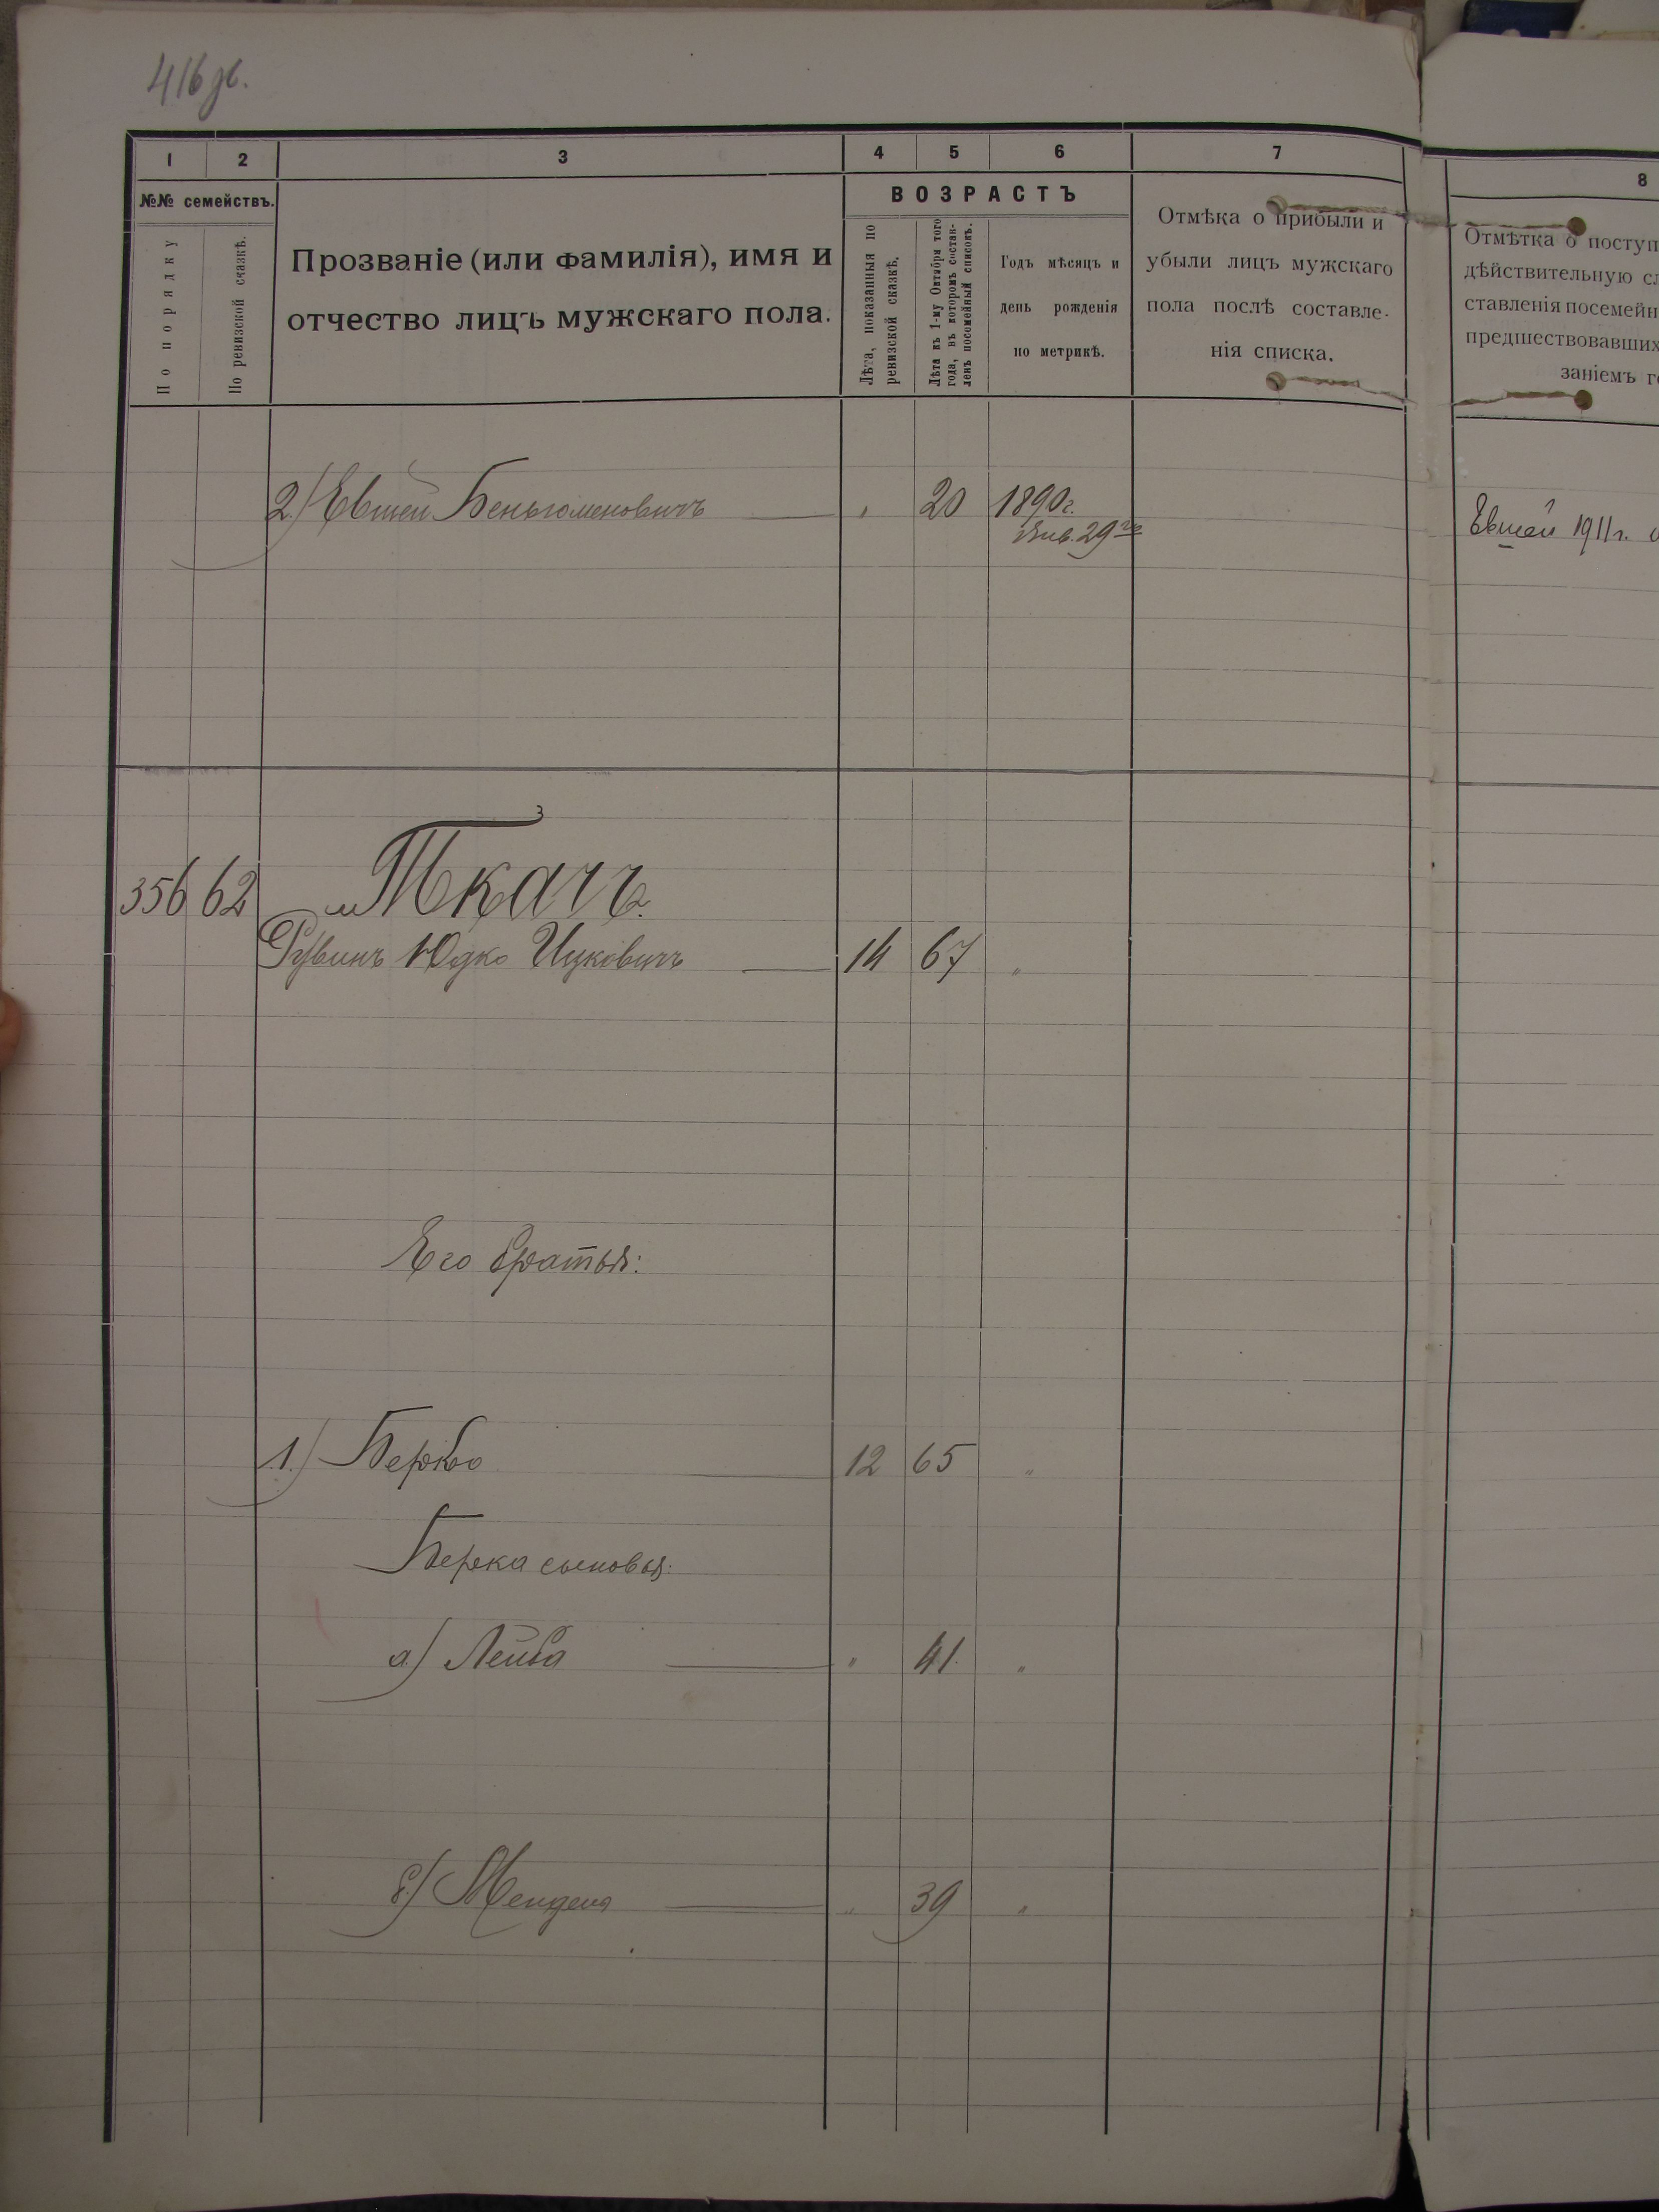 416 зв.
1 2 3 4 5 6 7 8
№№ семействъ.
По порядку
По ревизской сказкѣ.
Прозваніе (или фамилія), имя и
отчество лицъ мужскаго пола.
ВОЗРАСТЪ
Лѣта, показанныя по
ревизской сказкѣ.
Лѣта къ 1-му Октября того
года, въ которомъ состав-
ленъ посемейный списокъ.
Годъ мѣсяцъ и
день рожденія
по метрикѣ.
Отмѣка о прибыли и
убыли лицъ мужскаго
пола послѣ составле-
нія списка.
Отмѣтка о поступ
дѣйствительную сл
ставленія посемейн
предшествовавших
заніемъ г
2.) Евшей Беньюменовичъ " 20 1890г.
Янв. 29го
Евшей 1911г.
356 62 Ткачъ.
Рувинъ Юдко Ицковичъ 14 67 "
Его братья:
1.) Берко 12 65 "
Берка сыновья:
а.) Лейба " 41. "
б.) Мендель " 39 "